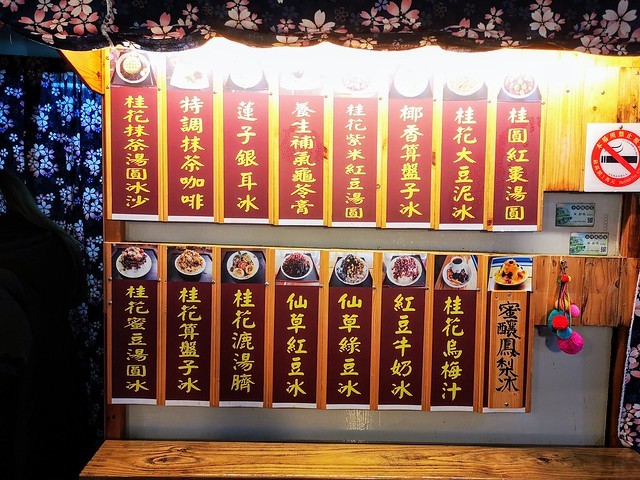 桂花抹茶湯圓冰沙
特調抹茶咖啡
蓮子銀耳冰
養生補氣龜苓膏
桂花紫米紅豆湯圓
椰香算盤子冰
桂花大豆泥冰
桂圓紅棗湯圓
桂花蜜豆湯圓冰
桂花算盤子冰
桂花漉湯臍
仙草紅豆冰
仙草綠豆冰
紅豆牛奶冰
桂花烏梅汁
蜜釀鳳梨冰